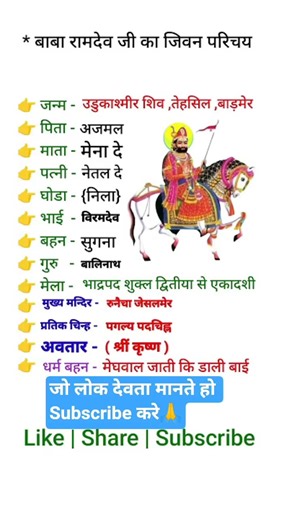 * बाबा रामदेव जी का जिवन परिचय
👉 जन्म - उडुकाश्मीर शिव ,तेहसिल ,बाड़मेर
👉 पिता - अजमल
👉 माता - मेना दे
👉 पत्नी - नेतल दे
👉 घोडा - {निला}
👉 भाई - विरमदेव
👉 बहन - सुगना
👉 गुरु - बालिनाथ
👉 मेला - भाद्रपद शुक्ल द्वितीया से एकादशी
👉 मुख्य मन्दिर - रुनैचा जेसलमेर
👉 प्रतिक चिन्ह - पगल्य पदचिह्न
👉 अवतार - ( श्रीं कृष्ण )
👉 धर्म बहन - मेघवाल जाती कि डाली बाई
जो लोक देवता मानते हो
Subscribe करे🙏
Like | Share | Subscribe